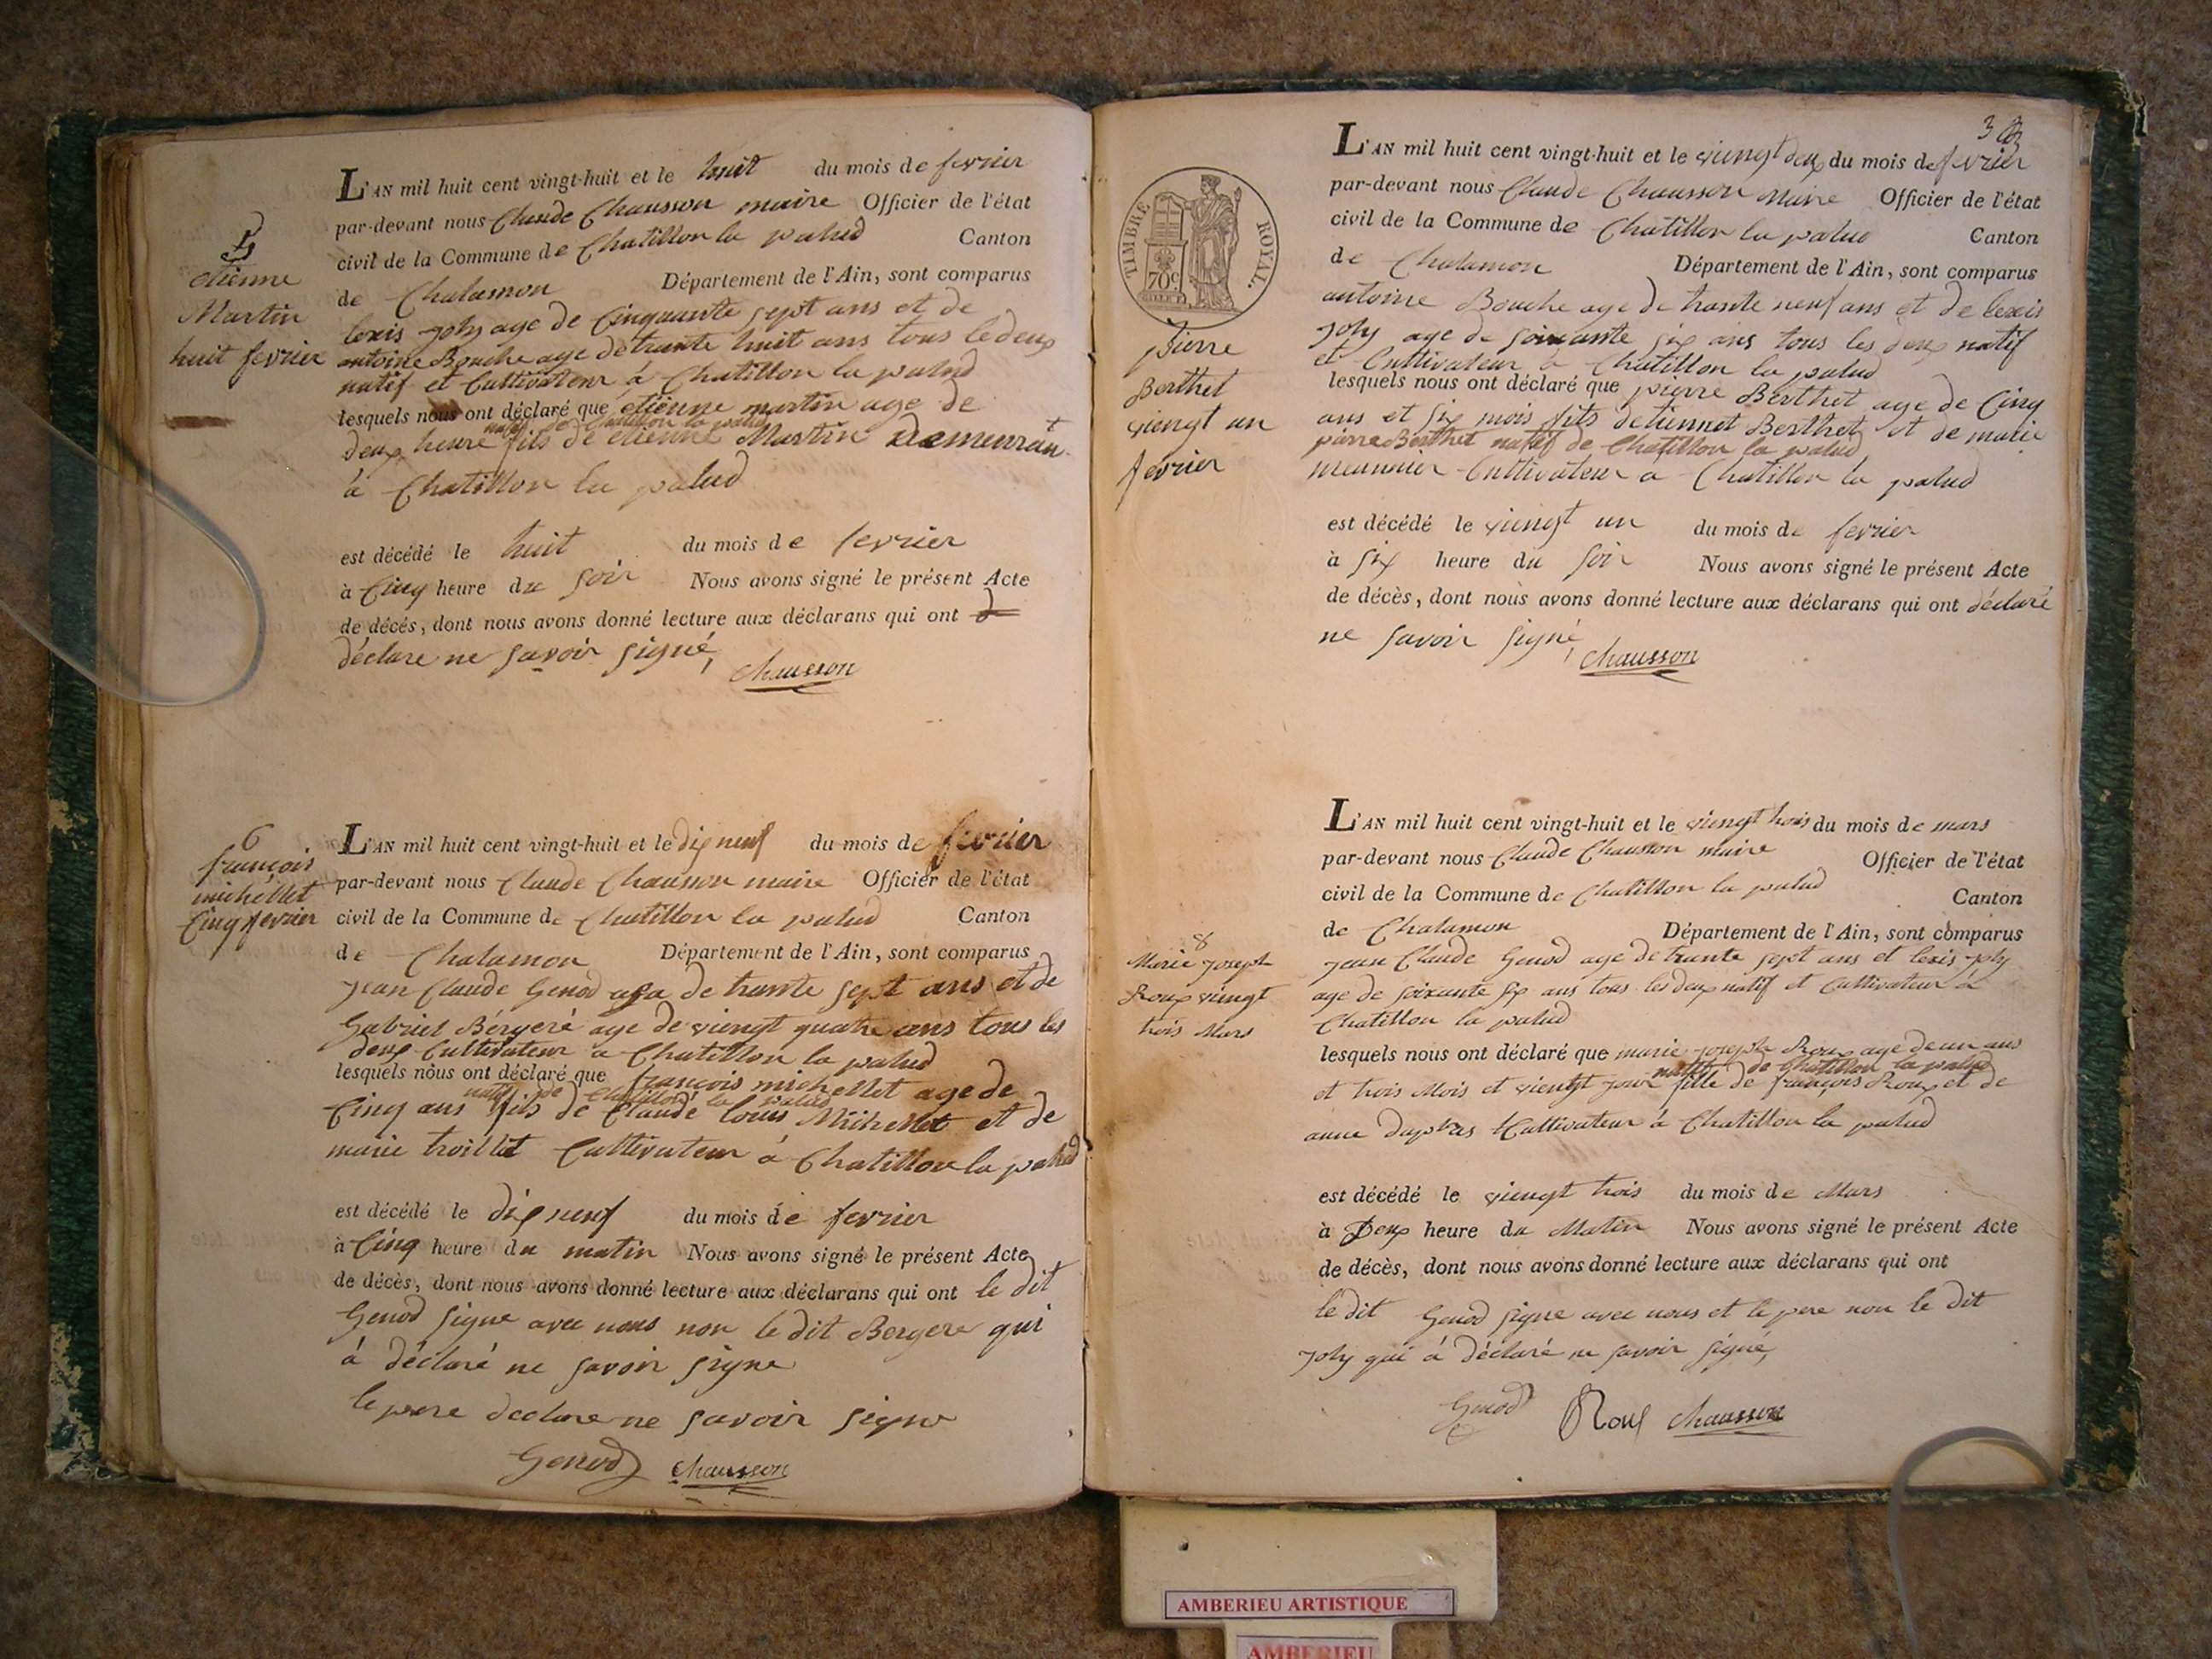 5
etienne
Martin
huit fevrier
L'AN mil huit cent vingt-huit et le huit du mois de fevrier
par-devant nous Claude Chausson maire Officier de l'état
civil de la Commune de Chatillon la palud Canton
de Chalamon Département de l'Ain, sont comparus
lexis joly age de Cinquante sept ans et de
antoine Bouche age de trante huit ans tous le deux
natif et Cultivateur à Chatillon la palud
lesquels nous ont déclaré que etienne martin age de
natif de Chatillon la palud
deux heure fils de etienne Martin demeurant
à Chatillon la palud
est décédé le huit du mois de fevrier
à Cinq heure du soir Nous avons signé le présent Acte
de décès, dont nous avons donné lecture aux déclarans qui ont
déclare ne savoir signé,
Chausson
6
françois
michellet
Cinq fevrier
L'AN mil huit cent vingt-huit et le dix neuf du mois de fevrier
par-devant nous Claude Chausson maire Officier de l'état
civil de la Commune de Chatillon la palud Canton
de Chalamon Département de l'Ain, sont comparus
jean Claude Genod aga de trante sept ans et de
Gabriel Bergeré age de viengt quatre ans tous les
deux Cultivateur a Chatillon la palud
lesquels nous ont déclaré que françois michellet age de
natif de Chatillon la palud
Cinq ans fils de Claude louis Michellet et de
marie troillet Cultivateur à Chatillon la palud
est décédé le dix neuf du mois de fevrier
à Cinq heure du matin Nous avons signé le présent Acte
de décès, dont nous avons donné lecture aux déclarans qui ont le dit
Genod signe avec nous non le dit Bergere qui
à déclaré ne savoir signe
le pere declare ne savoir signe
Genod Chausson
3
TIMBRE ROYAL.
70c
pierre
Berthet
viengt un
fevrier
L'AN mil huit cent vingt-huit et le viengt deux du mois de fevrier
par-devant nous Claude Chausson Maire Officier de l'état
civil de la Commune de Chatillon la palud Canton
de Chalamon Département de l'Ain, sont comparus
antoine Bouche age de trante neuf ans et de lexis
joly age de soixante six ans tous les deux natif
et Cultivateur a Chatillon la palud
lesquels nous ont déclaré que pierre Berthet age de Cinq
ans et six mois fils detiennet Berthet et de marie
pierre Berthet natif de Chatillon la palud
meunnier Cultivateur a Chatillon la palud
est décédé le viengt un du mois de fevrier
à six heure du soir Nous avons signé le présent Acte
de décès, dont nous avons donné lecture aux déclarans qui ont déclaré
ne savoir signé,
Chausson
8
Marie joseph
Roux viengt
trois Mars
L'AN mil huit cent vingt-huit et le viengt trois du mois de mars
par-devant nous Claude Chausson maire Officier de l'état
civil de la Commune de Chatillon la palud Canton
de Chalamon Département de l'Ain, sont comparus
jean Claude Genod age de trante sept ans et lexis joly
age de soixante six ans tous les deux natif et Cultivateur à
Chatillon la palud
lesquels nous ont déclaré que marie joseph Roux age de un ans
natif de Chatillon la palud
et trois Mois et viengt jour fille de françois Roux et de
anne Cultivateur à Chatillon la palud
est décédé le viengt trois du mois de Mars
à Deux heure du Matin Nous avons signé le présent Acte
de décès, dont nous avons donné lecture aux déclarans qui ont
le dit Genod signe avec nous et le pere non le dit
joly qui à déclaré ne savoir signé,
Genod Roux Chausson
AMBERIEU ARTISTIQUE
AMBERIEU